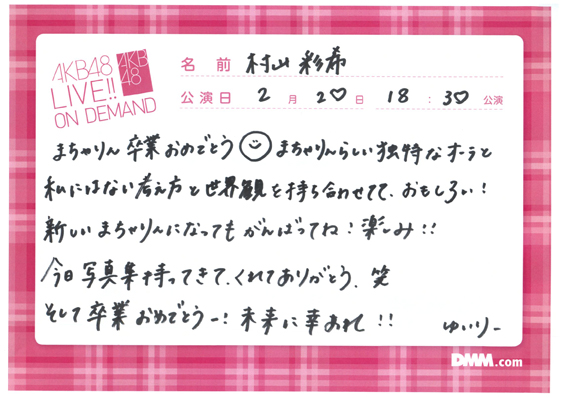 AKB48
LIVE!!
ON DEMAND
AKB
48
名前 村山彩希
公演日 2月20日 18:30公演
まちゃりん卒業おめでとう まちゃりんらしい独特なオーラと
私にはない考え方と世界観を持ち合わせてて、おもしろい！
新しいまちゃりんになってもがんばってね！楽しみ！！
今日写真集持ってきてくれてありがとう、笑
そして卒業おめでとうー！未来に幸あれ！！ ゆいりー
DMM.com